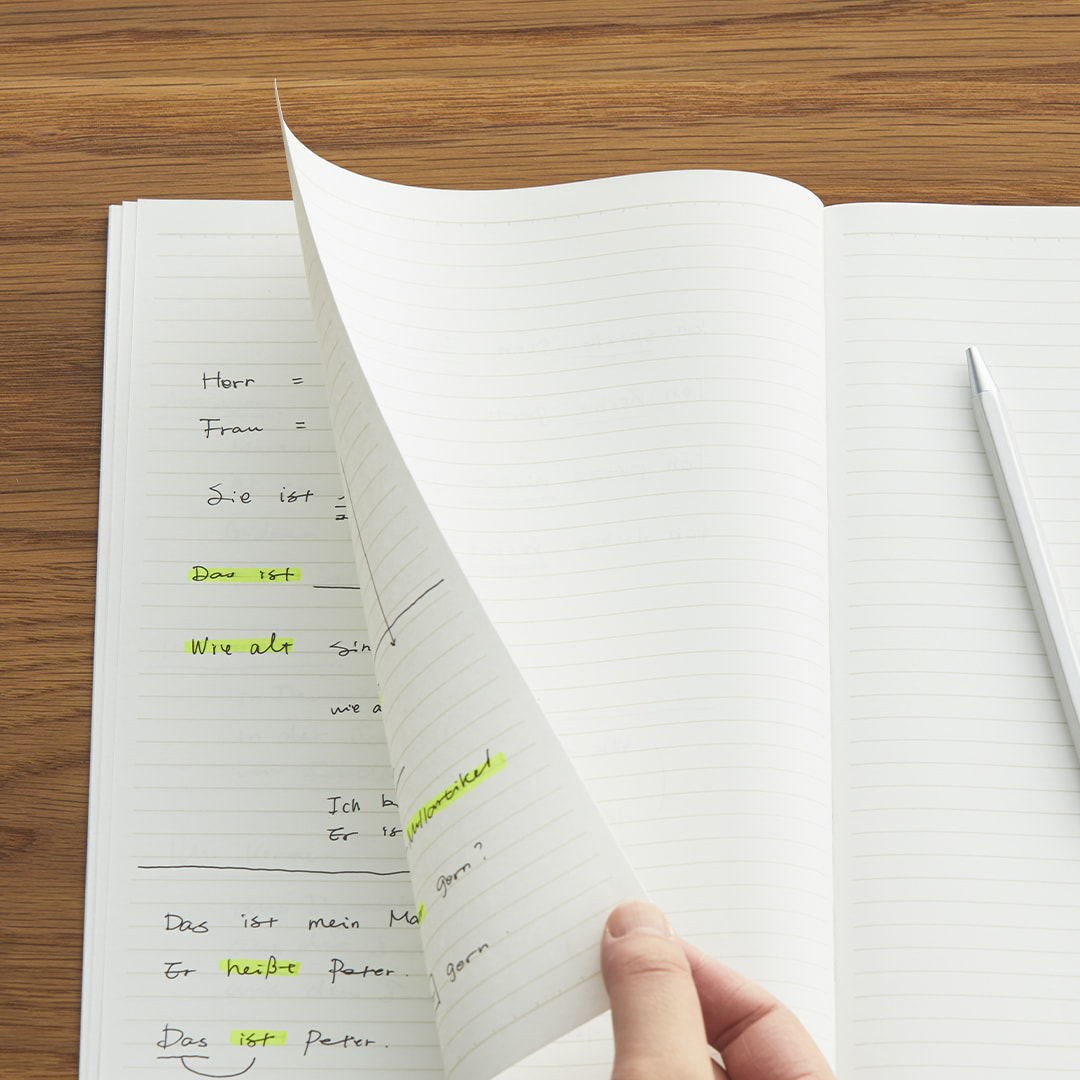 Herr =
Frau =
Sie ist
Das ist
Wie alt Sin
wie a
Ich b
Er is
Das ist mein Ma
Er heißt Peter.
Das ist Peter.
Nullartikel
gern?
gern.